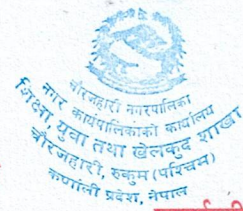 चौरजहारी नगरपालिका
नगर कार्यपालिकाको कार्यालय
शिक्षा, युवा तथा खेलकुद शाखा
चौरजहारी, रुकुम (पश्चिम)
कर्णाली प्रदेश, नेपाल